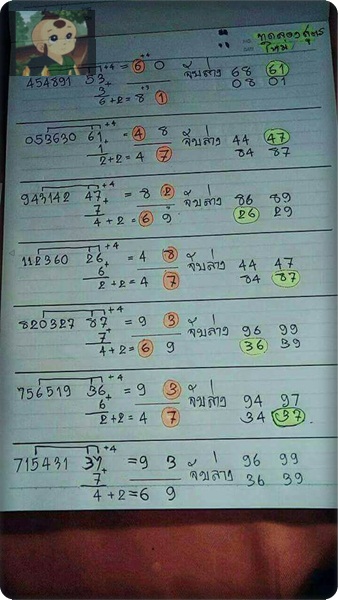 ทดลองสูตร
ใหม่
+4
454891 53 = 6 0 จับล่าง 68 61
3 + +3 08 01
6+2 = 8 1
+4
053630 61 = 4 8 จับล่าง 44 47
1 + 84 87
2+2 = 4 7
+4
943142 47 = 8 2 จับล่าง 86 89
7 + 26 29
4+2 = 6 9
+4
112360 26 = 4 8 จับล่าง 44 47
6 + 84 87
2+2 = 4 7
+4
820327 87 = 9 3 จับล่าง 96 99
7 + 36 39
4+2 = 6 9
+4
756519 36 = 9 3 จับล่าง 94 97
6 + 34 37
2+2 = 4 7
+4
715431 37 = 9 3 จับล่าง 96 99
7 36 39
4+2 = 6 9